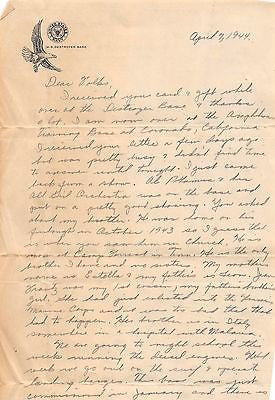 U.S. DESTROYER BASE
April 7, 1944.
Dear Folks,
I received your card & gift while
over at the Destroyer Base & thanks
a lot. I am now over at the Amphibious
Training Base at Coronado, California.
I received your letter a few days ago
but was pretty busy & didn't find time
to answer until tonight. I just came
back from a show.
all his Orchestra was on the base and
put on a pretty good showing. You asked
about my brother. He was home on his
furlough in October 1943 so I guess that
is when you saw him in Church. He
was at Camp Forrest in Tenn. He is the only
brother I have and no sisters. My mother's
name is Estella & my father's is Jean
was my 1st cousin, my father's brother's
girl. She had just enlisted into the
Marine Corps and it was too bad that that
had to happen. Her brother is in Italy
somewhere in a hospital with Malaria.
We are going to night school this
week running the diesel engines. Next
week we go out on the surf & operate
landing barges. This base was just
commissioned in January and there is